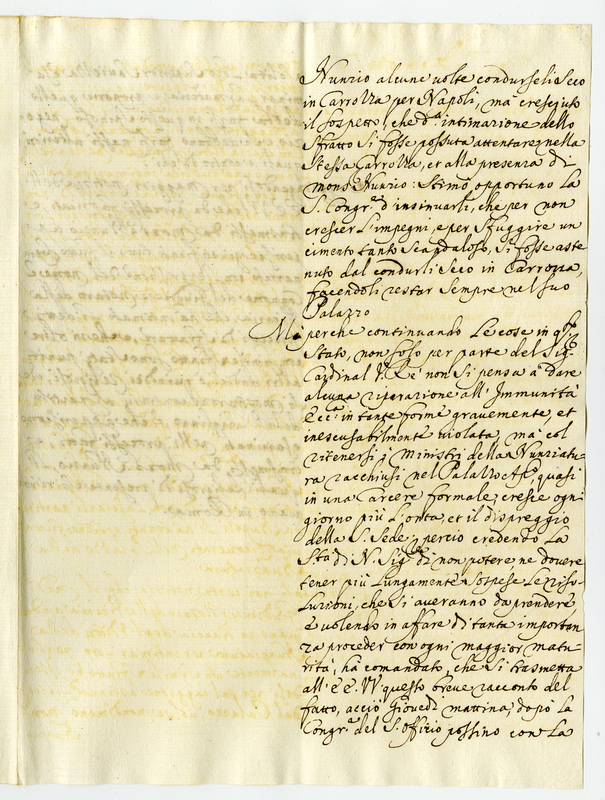 Nunzio alcune volte condurseli seco
in Carrozza per Napoli, mà cresciuto
il sospetto, che d.ª intimazione dello
sfratto si fosse possuta attentare nella
stessa Carrozza, et alla presenza di
mons.r Nunzio: Stimò opportuno la
S. Congr.e d'insinuarli, che per non
crescier l'impegni, e per sfuggire un
cimento tanto scandaloso, si fosse aste
nuto dal condurli seco in Carrozza,
facendoli restar sempre nel suo
Palazzo
Mà perche continuando le cose in q.sto
stato, non solo per parte del Sig.r
Cardinal V. Rè non si pensa a dare
alcuna riparazione all'Immunità
Ecc.a in tante forme gravemente, et
inescusabilmente violata, mà col
ritenersi i Ministri della Nunziatu
ra racchiusi nel Palazzo Ap.º, quasi
in una Carcere formale, cresce ogni
giorno più l'onta, et il dispreggio
della S. Sede; perciò credendo la
S.tà di N. Sig.re di non potere ne dovere
tener più lungamente sospese le riso
luzioni, che si averanno da prendere,
e volendo in affare di tanta importan
za proceder con ogni maggior matu
rità, hà comandato, che si trasmetta
all'EE. VV. questo breve racconto del
fatto, acciò Giovedì mattina, dopò la
Congr.e del S. Offizio possino con la